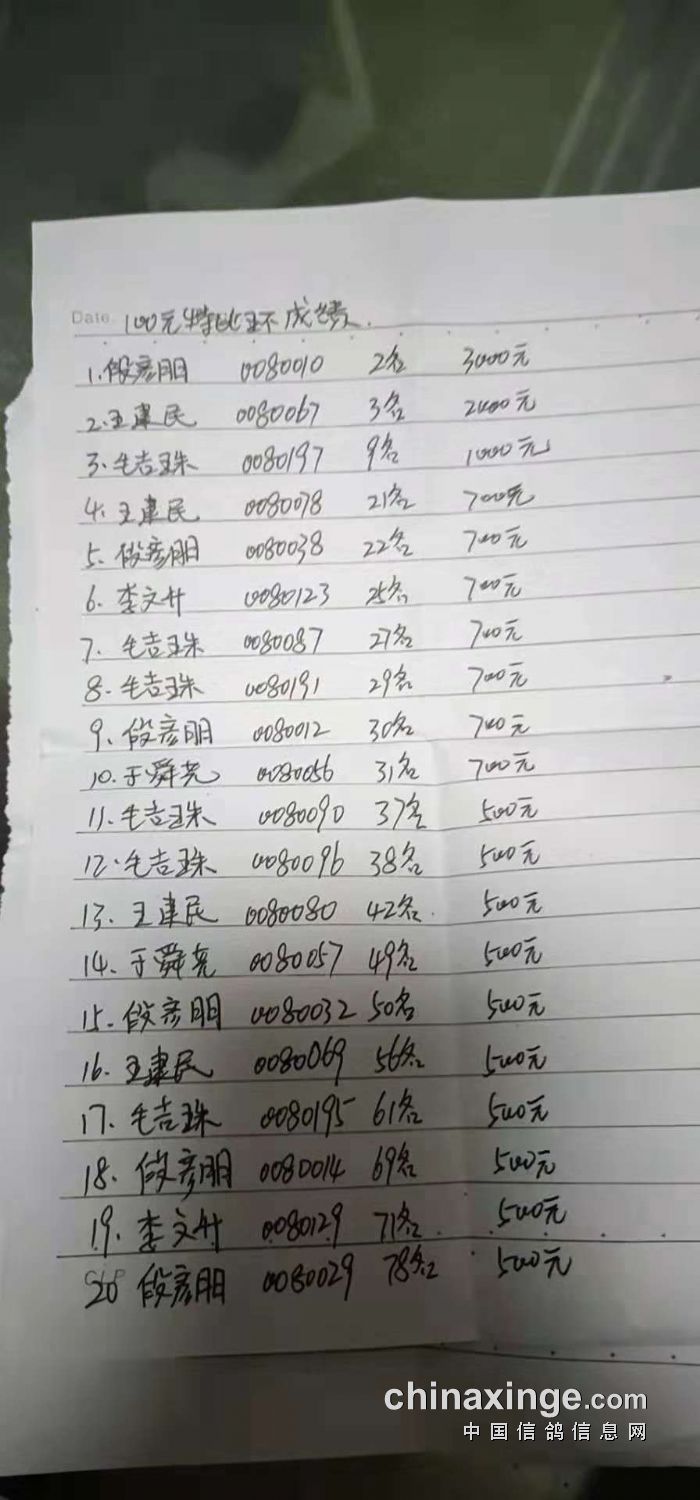 Date.
100元特比环成绩.
1.段彦朋 0080010 2名 3000元
2.王建民 0080067 3名 2000元
3.毛吉珠 0080197 9名 1000元
4.王建民 0080078 21名 700元
5.段彦朋 0080038 22名 700元
6.李文升 0080123 25名 700元
7.毛吉珠 0080087 27名 700元
8.毛吉珠 0080191 29名 700元
9.段彦朋 0080012 30名 700元
10.于舜尧 0080056 31名 700元
11.毛吉珠 0080090 37名 500元
12.毛吉珠 0080096 38名 500元
13.王建民 0080080 42名. 500元
14.于舜尧 0080057 49名 500元
15.段彦朋 0080032 50名 500元
16.王建民 0080069 56名 500元
17.毛吉珠 0080195 61名 500元
18.段彦朋 0080014 69名 500元
19.李文升 0080129 71名 500元
20 段彦朋 0080029 78名 500元
chinaxinge.com
中国信鸽信息网